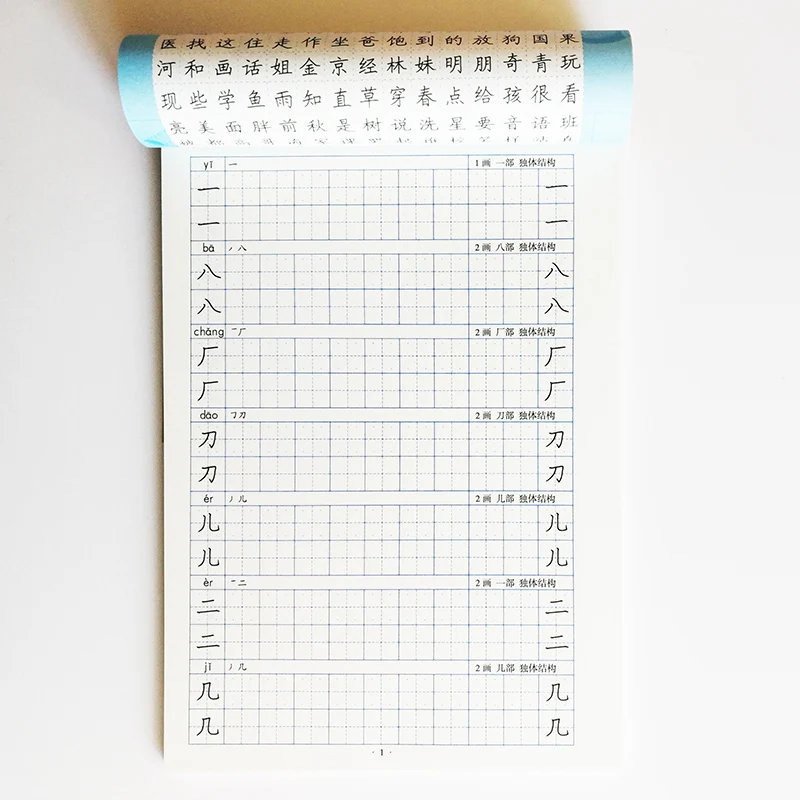 医 找 这 住 走 作 坐 爸 饱 到 的 放 狗 国 果
河 和 画 话 姐 金 京 经 林 妹 明 朋 奇 青 玩
现 些 学 鱼 雨 知 直 草 穿 春 点 给 孩 很 看
亮 美 面 胖 前 秋 是 树 说 洗 星 要 音 语 班
yī 一 1画 一部 独体结构
一 一
一 一
bā ノ 八 2画 八部 独体结构
八 八
八 八
chǎng 一 厂 2画 厂部 独体结构
厂 厂
厂 厂
dāo 𠃌 刀 2画 刀部 独体结构
刀 刀
刀 刀
ér 丿 儿 2画 儿部 独体结构
儿 儿
儿 儿
èr 一 二 2画 一部 独体结构
二 二
二 二
jī 丿 几 2画 几部 独体结构
几 几
几 几
- 1 -